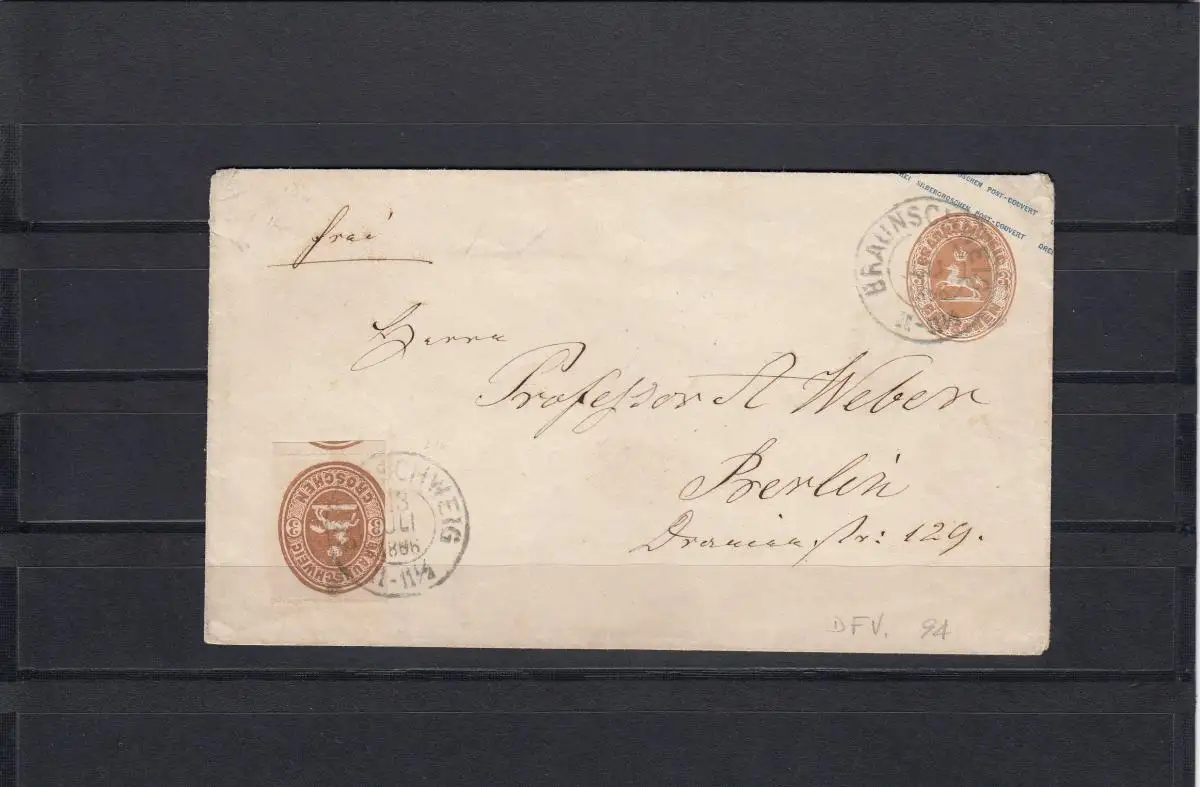 frei
DREI SILBERGROSCHEN POST-COUVERT
DREI SILBERGROSCHEN POST-COUVERT DREI
BRAUNSCHWEIG
Herrn
Professor A Weber
Berlin
Oranienstr: 129.
GROSCHEN
3 3
BRAUNSCHWEIG
SCHWEIG
13
JULI
1866
DFV. 94